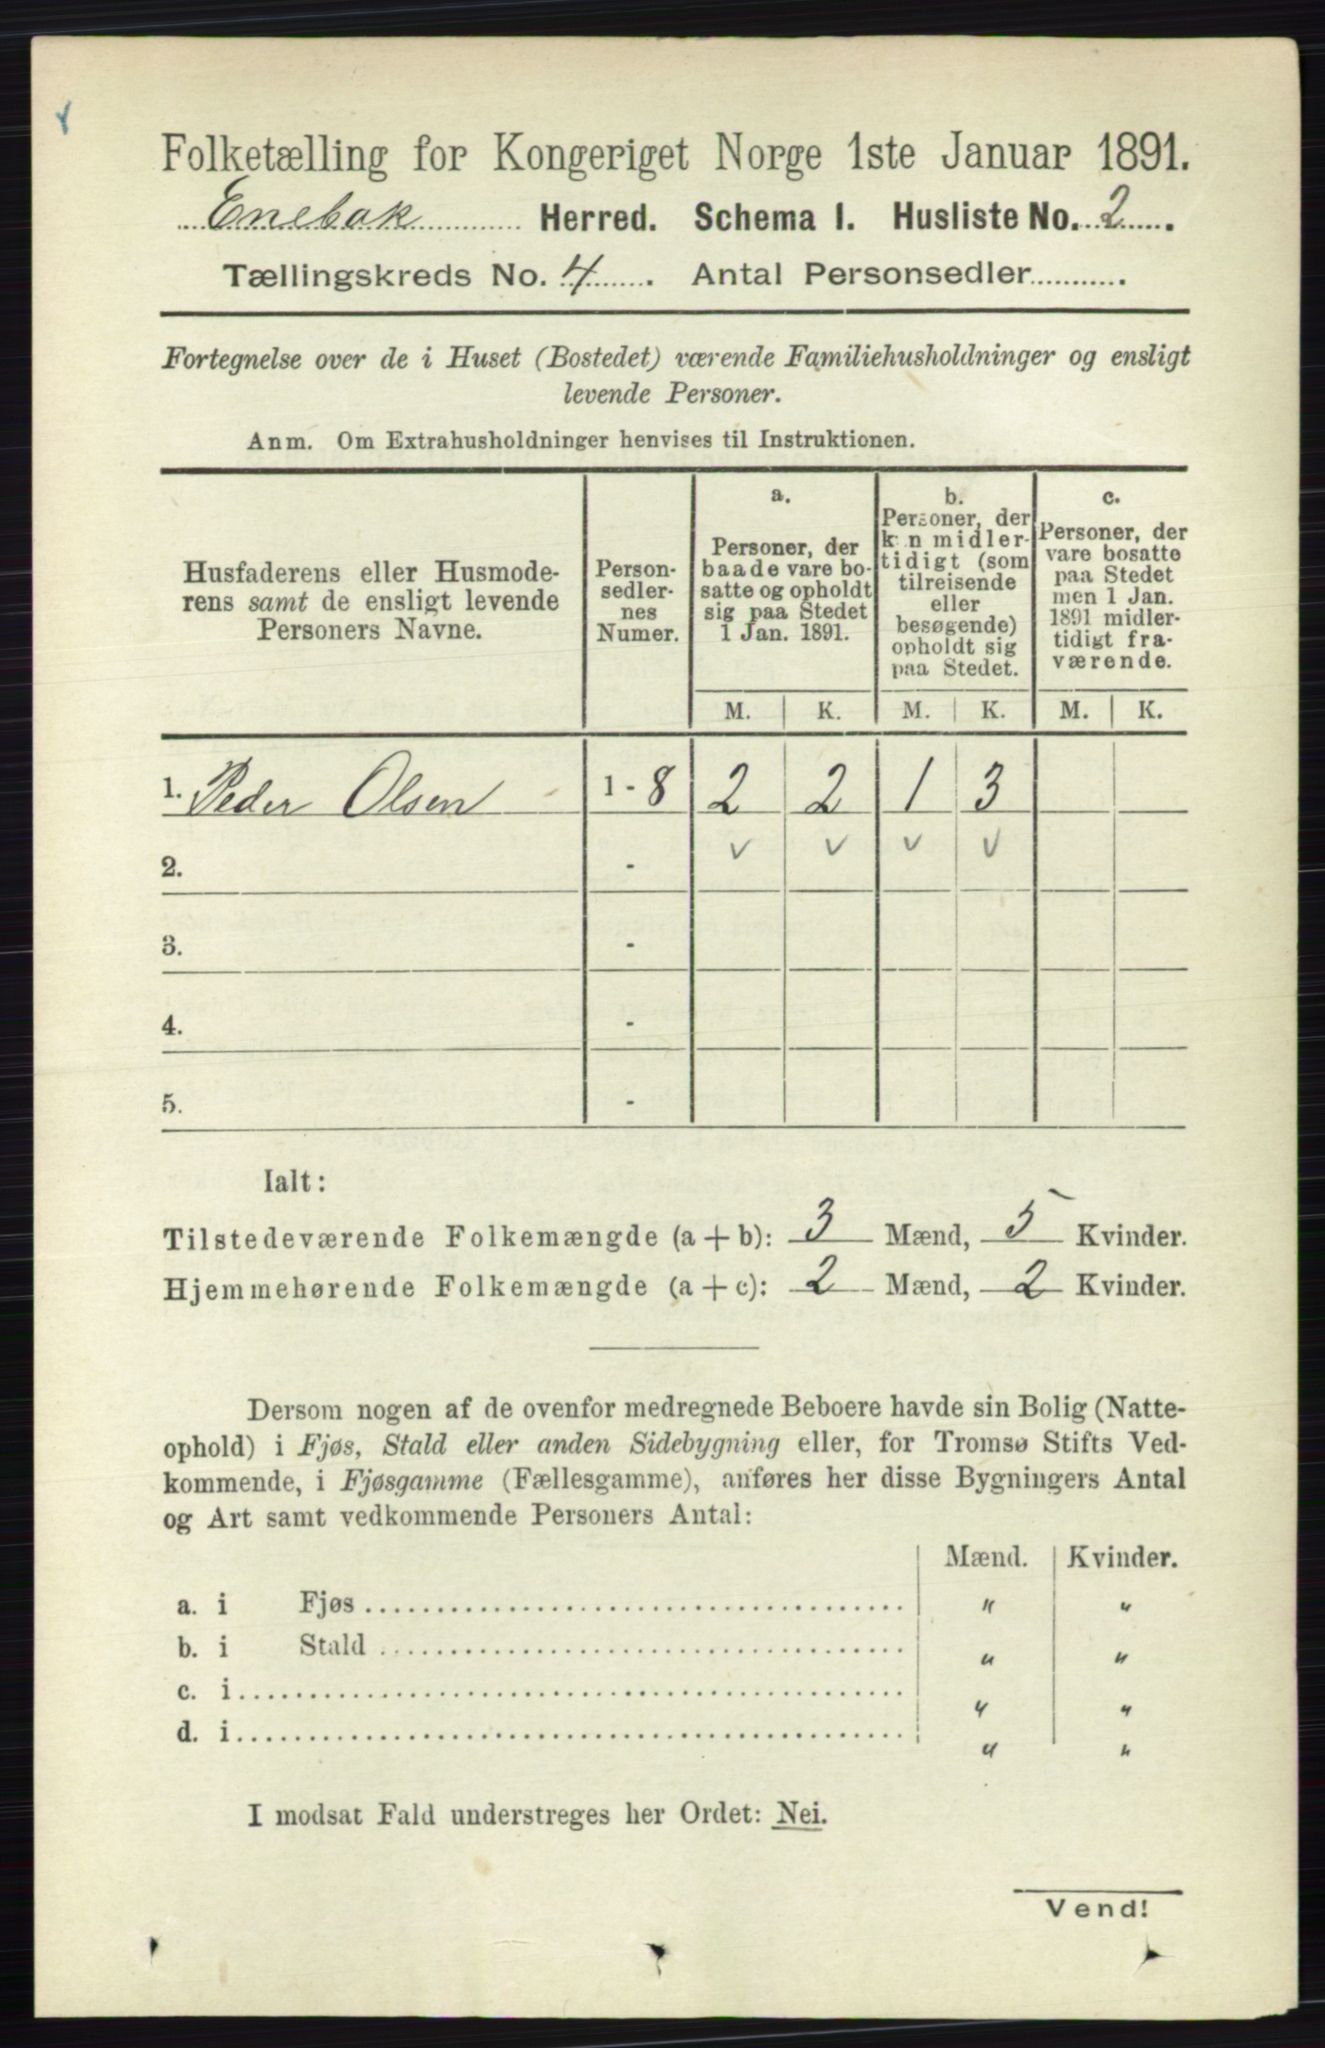 Folketælling for Kongeriget Norge 1ste Januar 1891.
Enebak Herred. Schema I. Husliste No. 2.
Tællingskreds No. 4. Antal Personsedler
Fortegnelse over de i Huset (Bostedet) værende Familiehusholdninger og ensligt
levende Personer.
Anm. Om Extrahusholdninger henvises til Instruktionen.
Husfaderens eller Husmode-
rens samt de ensligt levende
Personers Navne.
Person-
sedler-
nes
Numer.
a.
Personer, der
baade vare bo-
satte og opholdt
sig paa Stedet
1 Jan. 1891.
b.
Personer, der
kun midler-
tidigt (som
tilreisende
eller
besøgende)
opholdt sig
paa Stedet.
c.
Personer, der
vare bosatte
paa Stedet
men 1 Jan.
1891 midler-
tidigt fra-
værende.
M. K. M. K. M. K.
1. Peder Olsen 1 - 8 2 2 1 3
2. - v v v v
3. -
4. -
5. -
Ialt:
Tilstedeværende Folkemængde (a + b): 3 Mænd, 5 Kvinder.
Hjemmehørende Folkemængde (a + c): 2 Mænd, 2 Kvinder.
Dersom nogen af de ovenfor medregnede Beboere havde sin Bolig (Natte-
ophold) i Fjøs, Stald eller anden Sidebygning eller, for Tromsø Stifts Ved-
kommende, i Fjøsgamme (Fællesgamme), anføres her disse Bygningers Antal
og Art samt vedkommende Personers Antal:
Mænd. Kvinder.
a. i Fjøs " "
b. i Stald " "
c. i " "
d. i " "
I modsat Fald understreges her Ordet: Nei.
Vend!